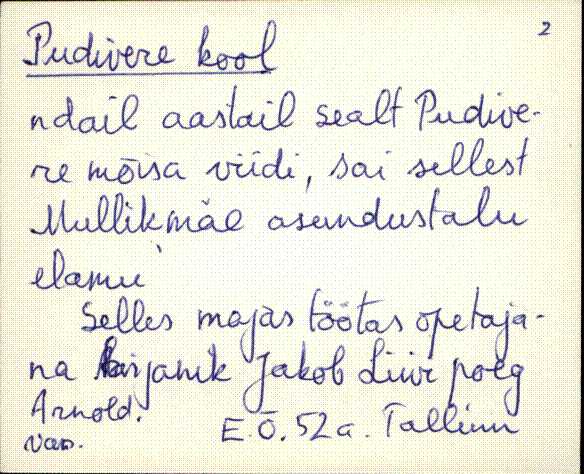 2
Pudivere kool
ndail aastail sealt Pudive-
re mõisa viidi, sai sellest
Mullikmäe asundustalu
elamu
Selles majas töötas õpetaja-
na kirjanik Jakob Liivi poeg
Arnold.
van. E.Õ. 52 a. Tallinn